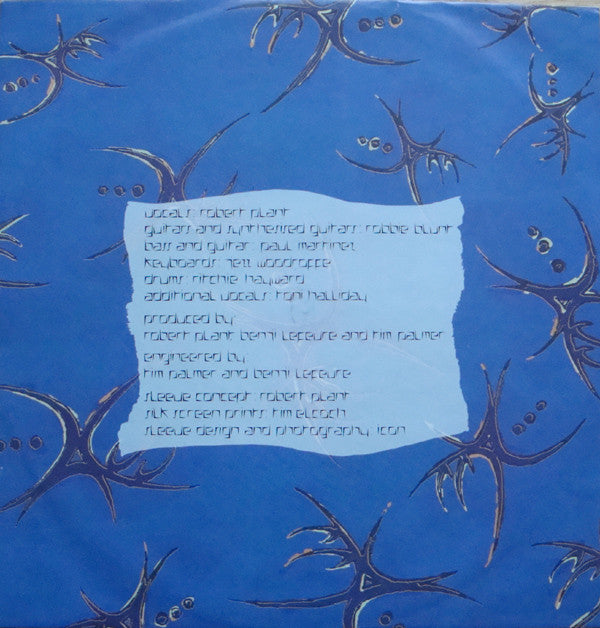 vocals: robert plant
guitars and synthesised guitars: robbie blunt
bass and guitar: paul martinez
keyboards: jezz woodroffe
drums: ritchie hayward
additional vocals: toni halliday
produced by:
robert plant benji lefevre and tim palmer
engineered by
tim palmer and benji lefevre
sleeve concept: robert plant
silk screen prints: tim elcoch
sleeve design and photography: icon